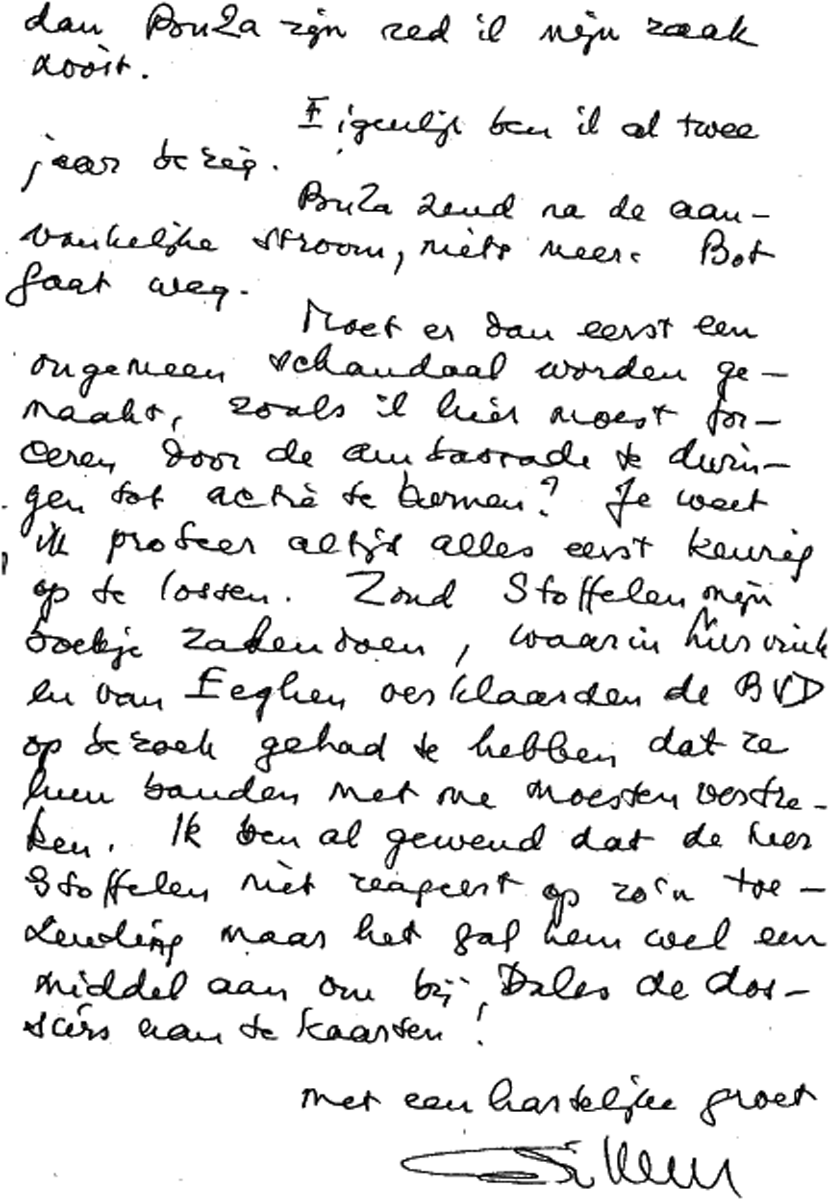 dan BuZa zijn red ik mijn zaak
nooit.
Eigenlijk ben ik al twee
jaar bezig.
BuZa zend na de aan-
vankelijke stroom, niets meer. Bot
gaat weg.
Moet er dan eerst een
ongemeen schandaal worden ge-
maakt, zoals ik hier moest for-
ceren door de ambassade te dwin-
gen tot actie te komen? Je weet
ik probeer altijd alles eerst keurig
op te lossen. Zond Stoffelen mijn
boekje zakendoen, waarin
en van Eeghen verklaarden de BVD
op bezoek gehad te hebben dat ze
hun banden met me moesten verbre-
ken. Ik ben al gewend dat de heer
Stoffelen niet reageert op zo'n toe-
zending maar het gaf hem wel een
middel aan om bij Dales de dos-
siers aan te kaarten!
met een hartelijke groet
Willem